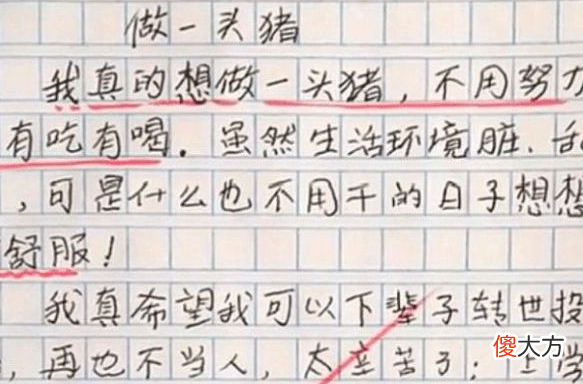 做一头猪
我真的想做一头猪，不用努力
有吃有喝．虽然生活环境脏、
，可是什么也不用干的日子想想
舒服！
我真希望我可以下辈子转世投
，再也不当人，太辛苦了；上学
傻大方